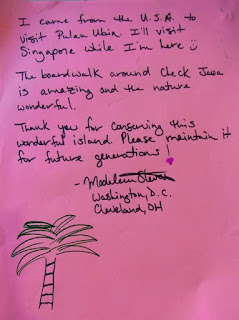 I came from the U.S.A. to
visit Pulau Ubin. I'll visit
Singapore while I'm here
The boardwalk around Check Jawa
is amazing and the nature
wonderful.
Thank you for conserving this
wonderful island. Please maintain it
for future generations!
- Madeleine
Washington, D.C.
Cleveland, OH